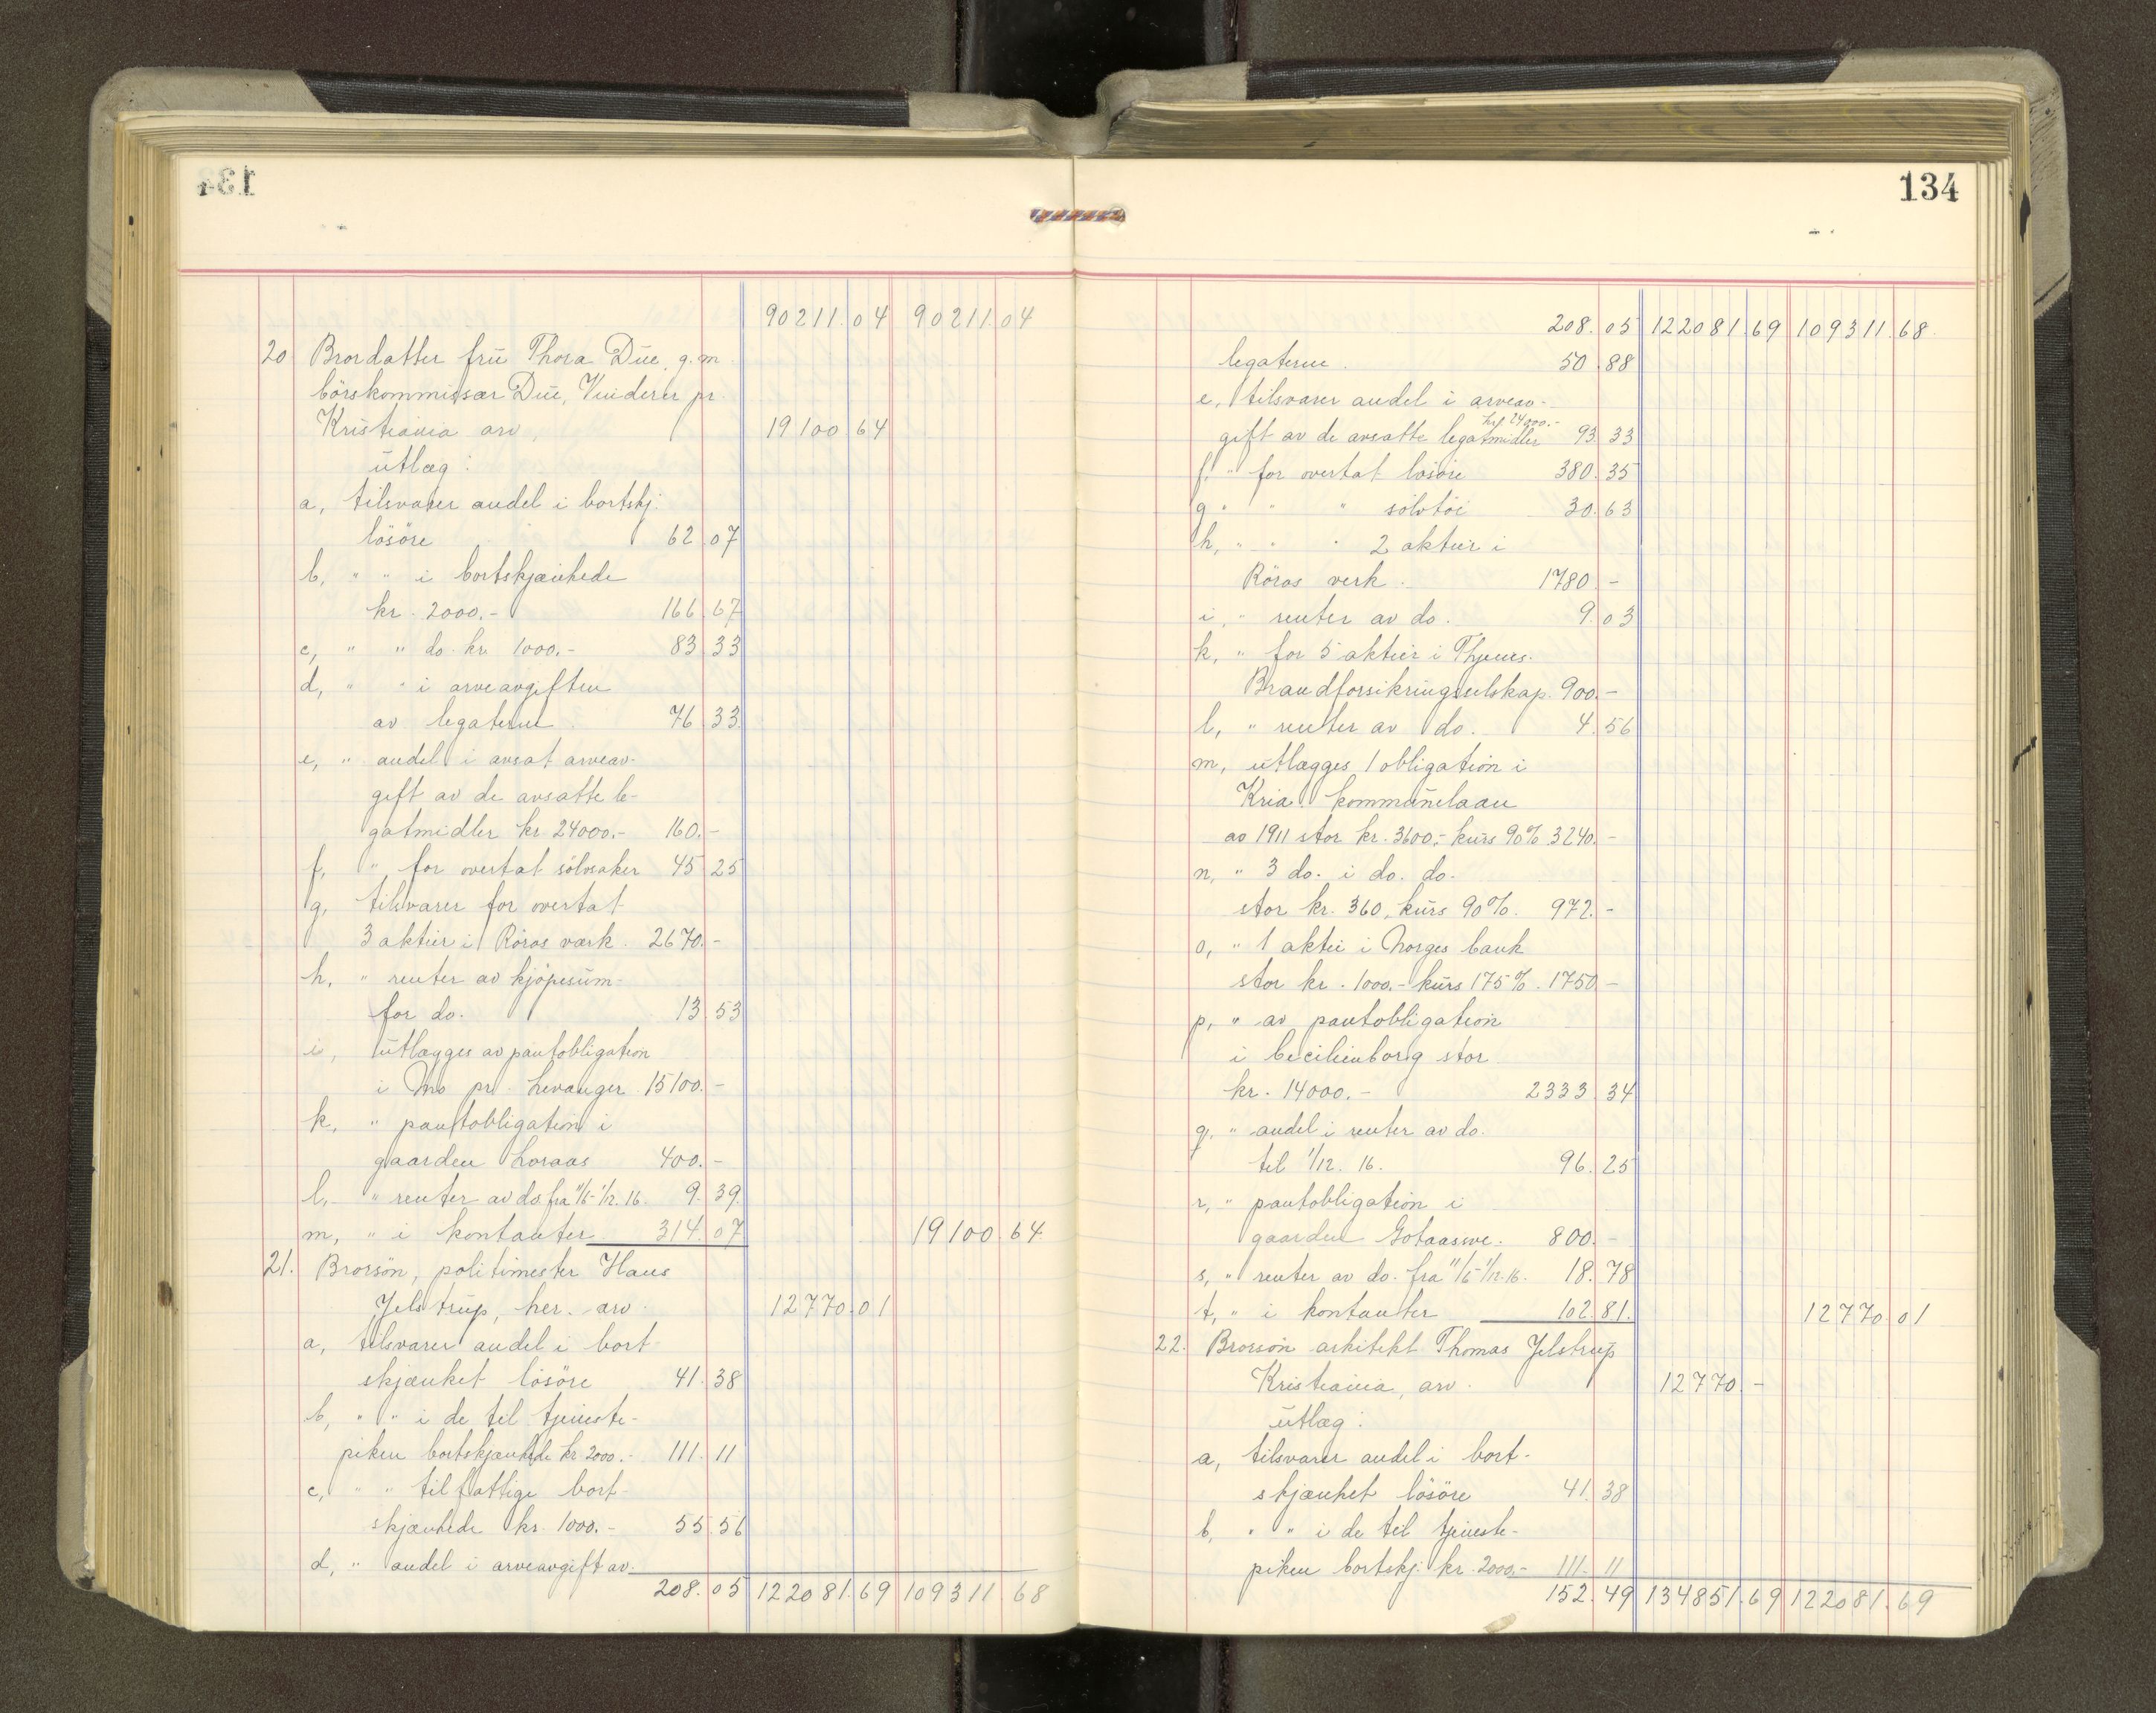 134
90211.04 90211.04
20 Brordatter frü Thora Düe, g. m.
börskommissær Düe, Vinderen pr.
Kristiania arv, 19100 64
ütlæg:
a, tilsvarer andel i bortskj.
lösöre 62.07
b, " " i bortskjænkede
kr. 2000.- 166.67
c, " " do. kr. 1000.- 83.33
d, " " i arveavgiften
av legaterne 76.33
e, " andel i avsat arveav-
gift av de avsatte le-
gatmidler kr 24000.- 160.-
f, " for overtat sölvsaker 45 25
g, tilsvarer for overtat
3 aktier i Röros værk. 2670.-
h, " renter av kjöpesüm-
for do. 13.53
i, ütlægges av pantobligation
i Mo pr. Levanger 15100.-
k, " pantobligation i
gaarden Loraas 400.-
l, " renter av do. fra 11/5-1/12. 16. 9.39.
m, " i kontanter 314.07 19100.64.
21. Brorsön, politimester Hans
Jelstrup, her. arv. 12770.01
a, tilsvarer andel i bort
skjænket lösöre 41.38
b, " " i de til tjeneste-
piken bortskjænkede kr 2000.- 111.11
c, " " til fattige bort-
skjænkede kr. 1000.- 55.56
d, " andel i arveavgift av.
208.05 122081.69 109311.68
134
208.05 122081.69 109311.68.
legaterne. 50.88
e, tilsvarer andel i arveav-
kr. 24000.-
gift av de avsatte legatmidler 93.33
f, " for overtat lösöre 380.35
g " " " sölvtöi 30.63
h, " " " 2 aktier i
Röros verk. 1780.-
i, " renter av do. 9.03
k, " for 5 aktier i Thjems.
Brandforsikringsselskap. 900.-
l, " renter av do. 4.56
m, ütlægges 1 obligation i
Kria. kommünelaan
av 1911 stor kr. 3600.- kürs 90% 3240.-
n, " 3 do. i do. do.
stor kr. 360, kürs 90%. 972.-
o, " 1 aktie i Norges bank
stor kr. 1000.- kürs 175%. 1750.-
p, " av pantobligation
i Cecilienborg stor
kr. 14000.- 2333.34
q, " andel i renter av do.
til 1/12. 16. 96.25
r, " pantobligation i
gaarden Gotaasvve. 800.-
s, " renter av do. fra 11/5-1/12. 16. 18.78
t, " i kontanter 102.81. 12770.01
22. Brorsön arkitekt Thomas Jelstrüp
Kristiania, arv. 12770.-
ütlæg:
a, tilsvarer andel i bort-
skjænket lösöre 41.38
b, " " i de til tjeneste-
piken bortskj. kr. 2000.- 111.11
152.49 134851.69 122081.69